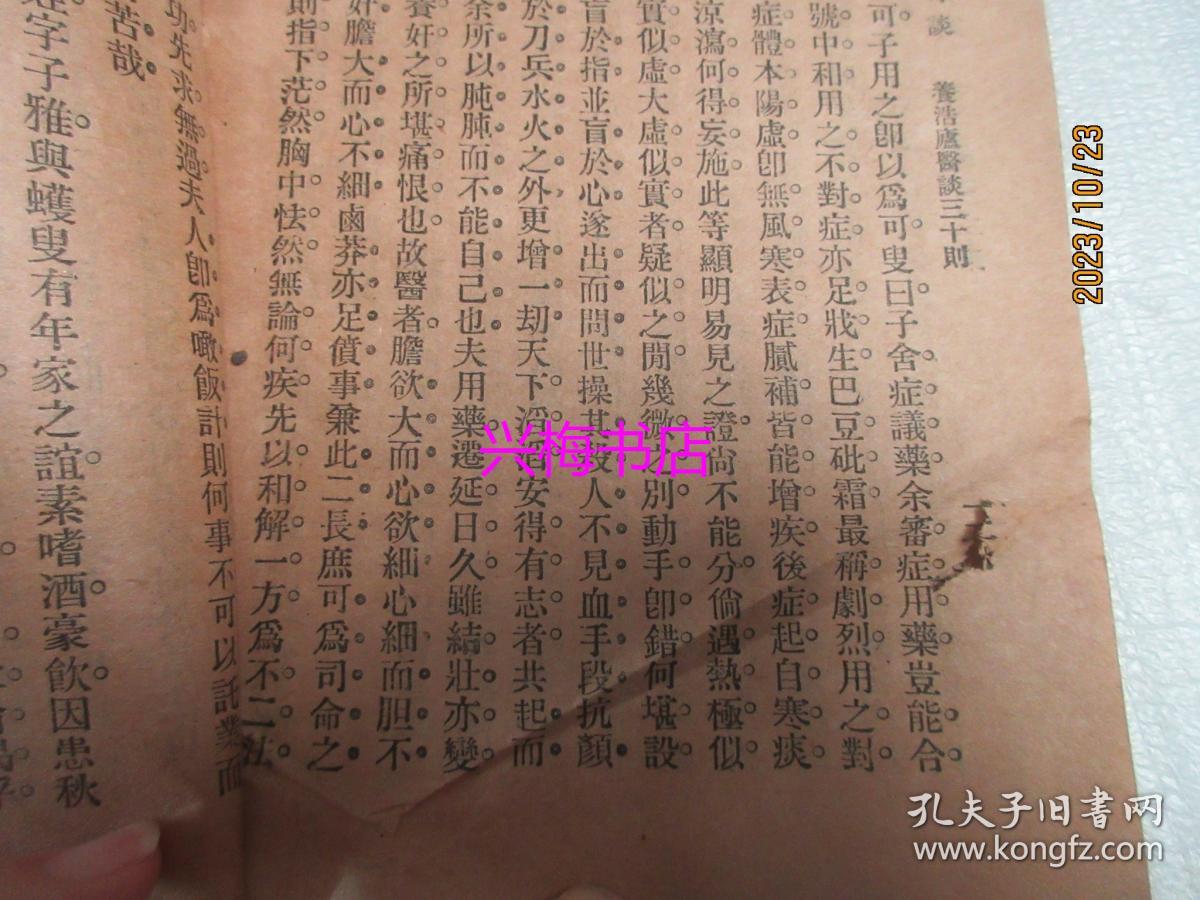 談 養浩廬醫談三十則
可子用之卽以爲可叟曰子舍症議藥余審症用藥豈能合
號中和用之不對症亦足戕生巴豆砒霜最稱劇烈用之對
症體本陽虛卽無風寒表症膩補皆能增疾後症起自寒痰
涼瀉何得妄施此等顯明易見之證尙不能分倘遇熱極似
實似虛大虛似實者疑似之閒幾微之別動手卽錯何堪設
盲於指並盲於心遂出而問世操其殺人不見血手段抗顏
於刀兵水火之外更增一劫天下滔滔安得有志者共起而
余所以肫肫而不能自己也夫用藥遷延日久雖結壯亦變
養奸之所堪痛恨也故醫者膽欲大而心欲細心細而胆不
好膽大而心不細鹵莽亦足僨事兼此二長庶可爲司命之
則指下茫然胸中怯然無論何疾先以和解一方爲不二法
功先求無過夫人卽爲噉飯計則何事不可以託業而
苦哉
字子雅與蠖叟有年家之誼素嗜酒豪飮因患秋
兴梅书店
2023/10/23
孔夫子旧书网
www.kongfz.com